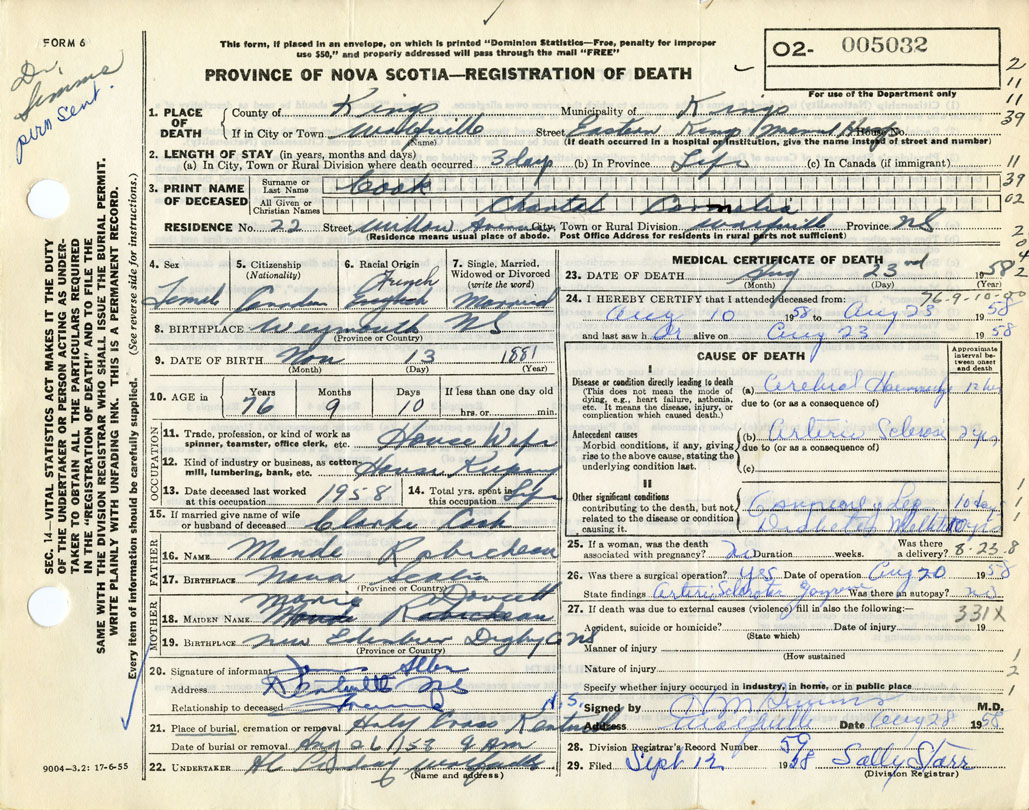 FORM 6
Dr.
Simms
pern Sent.
This form, if placed in an envelope, on which is printed "Dominion Statistics—Free, penalty for improper
use $50," and properly addressed will pass through the mail "FREE"
PROVINCE OF NOVA SCOTIA—REGISTRATION OF DEATH
O2- 005032
For use of the Department only
SEC. 14—VITAL STATISTICS ACT MAKES IT THE DUTY
OF THE UNDERTAKER OR PERSON ACTING AS UNDER-
TAKER TO OBTAIN ALL THE PARTICULARS REQUIRED
IN THE "REGISTRATION OF DEATH" AND TO FILE THE
SAME WITH THE DIVISION REGISTRAR WHO SHALL ISSUE THE BURIAL PERMIT.
WRITE PLAINLY WITH UNFADING INK. THIS IS A PERMANENT RECORD.
Every item of information should be carefully supplied. (See reverse side for instructions.)
1. PLACE OF DEATH
County of Kings Municipality of Kings
If in City or Town Wolfville Street Eastern Kings House No.
(Name) (If death occurred in a hospital or institution, give the name instead of street and number)
2. LENGTH OF STAY (in years, months and days)
(a) In City, Town or Rural Division where death occurred 3 days (b) In Province Life (c) In Canada (if immigrant)
3. PRINT NAME OF DECEASED
Surname or Last Name Cook
All Given or Christian Names Chantal Cornelia
RESIDENCE No. 22 Street Willow Avenue City, Town or Rural Division Wolfville Province NS
(Residence means usual place of abode. Post Office Address for residents in rural parts not sufficient)
4. Sex
Female
5. Citizenship
(Nationality)
Canadian
6. Racial Origin
French
English
7. Single, Married,
Widowed or Divorced
(write the word)
Married
8. BIRTHPLACE Weymouth NS
(Province or Country)
9. DATE OF BIRTH Nov 13 1881
(Month) (Day) (Year)
10. AGE in
Years Months Days If less than one day old
76 9 10 hrs. or min.
OCCUPATION
11. Trade, profession, or kind of work as
spinner, teamster, office clerk, etc. House Wife
12. Kind of industry or business, as cotton-
mill, lumbering, bank, etc. House Keeping
13. Date deceased last worked
at this occupation 1958
14. Total yrs. spent in
this occupation Life
15. If married give name of wife
or husband of deceased Clarke Cook
FATHER
16. NAME Mande Robicheau
17. BIRTHPLACE Nova Scotia
(Province or Country)
MOTHER
Marie Doucett
18. MAIDEN NAME
19. BIRTHPLACE New Edinburg Digby Co NS
(Province or Country)
20. Signature of informant James Allen
Address Kentville NS
Relationship to deceased
21. Place of burial, cremation or removal Holy Cross Kentville N.S.
Date of burial or removal Aug 26/58 9 AM
22. UNDERTAKER Wolfville
(Name and address)
9004—3.2: 17-6-55
MEDICAL CERTIFICATE OF DEATH
23. DATE OF DEATH Aug 23nd 1958
(Month) (Day) (Year)
76-9-10-00
24. I HEREBY CERTIFY that I attended deceased from:
Aug 10 1958 to Aug 23 1958
and last saw her alive on Aug 23 1958
CAUSE OF DEATH
Approximate
interval be-
tween onset
and death
I
Disease or condition directly leading to death
(This does not mean the mode of
dying, e.g., heart failure, asthenia,
etc. It means the disease, injury, or
complication which caused death.)
(a) Cerebral Haemorrhage 12 hrs
due to (or as a consequence of)
Antecedent causes
Morbid conditions, if any, giving
rise to the above cause, stating the
underlying condition last.
(b) Arterio Sclerosis 2 yrs
due to (or as a consequence of)
(c)
II
Other significant conditions
contributing to the death, but not
related to the disease or condition
causing it.
Leg 10 days
Diabetes Mellitus 10 yrs
25. If a woman, was the death
associated with pregnancy? No Duration weeks. Was there
a delivery? 8-23-8
26. Was there a surgical operation? Yes Date of operation Aug 20 1958
State findings Arterio Sclerotic Was there an autopsy? no
27. If death was due to external causes (violence) fill in also the following:
331X
Accident, suicide or homicide? Date of injury 19
(State which)
Manner of injury
(How sustained
Nature of injury
Specify whether injury occurred in industry, in home, or in public place
Signed by M.D.
Address Wolfville Date Aug 28 1958
28. Division Registrar's Record Number 59
29. Filed Sept 12 1958 Sally Starr
(Division Registrar)
2
11
11
39
11
39
02
2
0
4
2
1
1
1
1
2
1